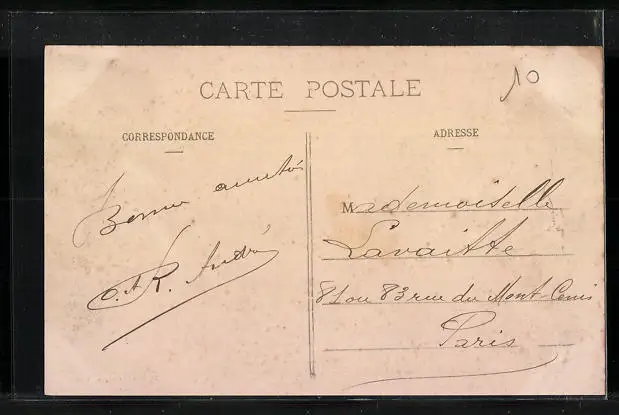 CARTE POSTALE
10
CORRESPONDANCE
ADRESSE
Bonne amitiés
C. et R. André
Mademoiselle
Lavaitte
81 ou 83 rue du Mont-Cenis
Paris